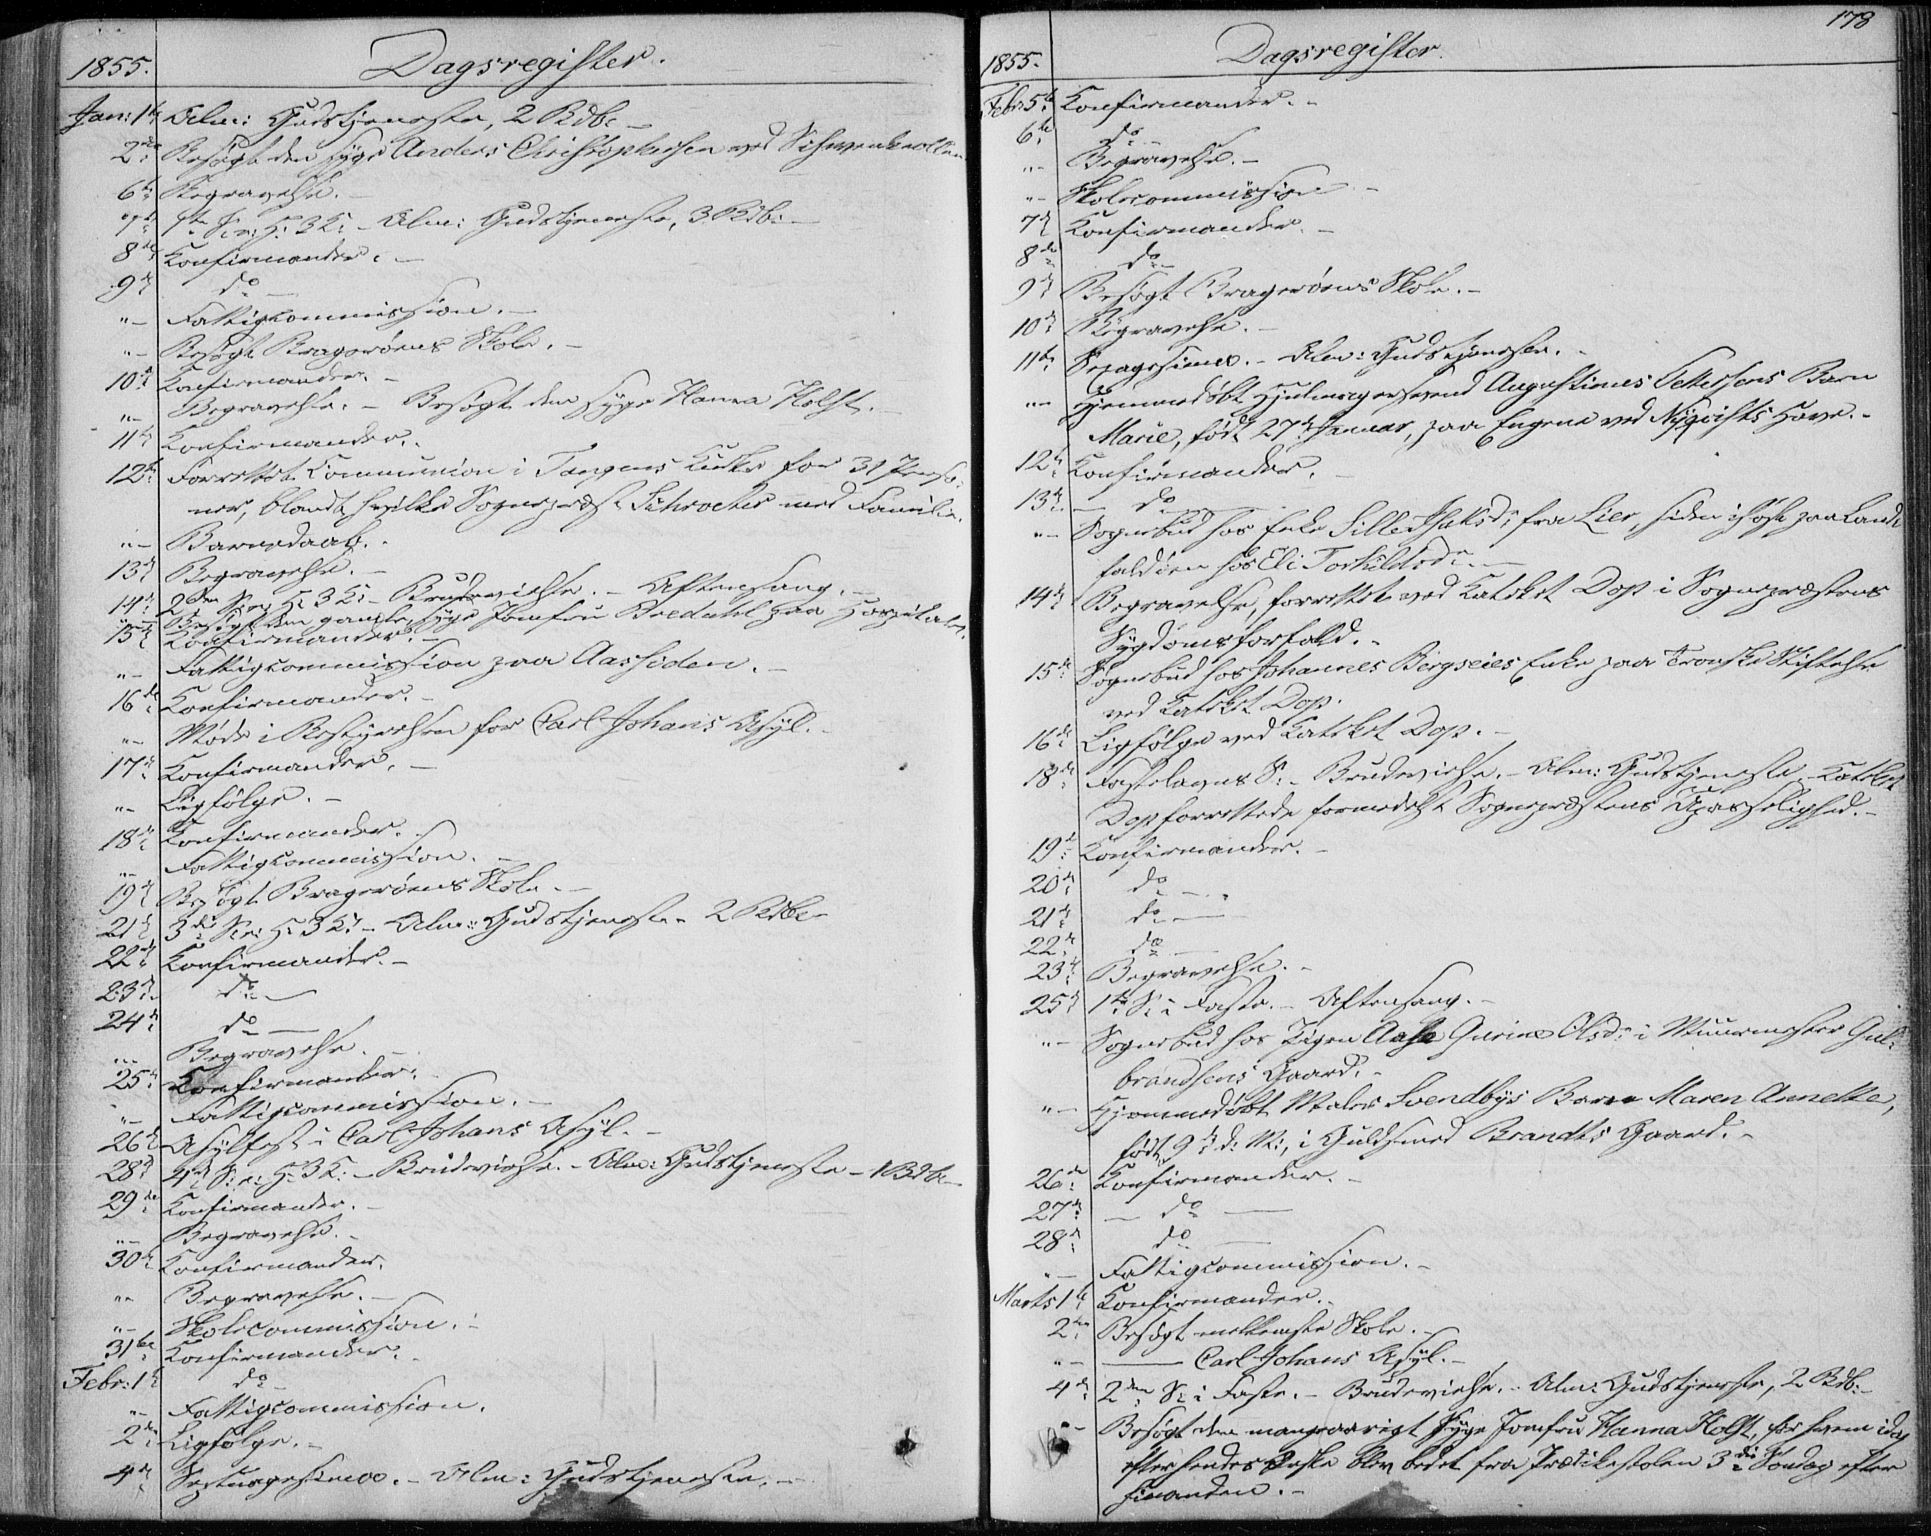 1855. Dagsregister.
Jan: 1ste Alm: Gudstjeneste, 2 Rdb.
2den Besøgt den syge Anders Christophersen ved
6te Begravelse. –
7de 1ste S. e. H. 3 K. – Alm: Gudstjeneste, 3 Rdb. –
8de Konfirmander. –
9de do –
"– Fattigcommission. –
"– Besøgt Bragerøens Skole. –
10de Konfirmander. –
"– Begravelse. – Besøgt den syge Hanna Holst.
11te Konfirmander. –
12te Forrettet Communion i Tangens Kirke for 31 Perso-
ner, blandt hvilke Sognepræst Schroeter med Familie.
"– Barnedaab. –
13de Begravelse. –
14de 2den S. e. H. 3 K. – Brudevielse. – Aftensang. –
"– Besøgt den gamle syge Jomfru Bredahl paa Hospitalet.
15de Konfirmander. –
"– Fattigcommission paa Aassiden. –
16de Konfirmander. –
"– Møde i Bestyrelsen for Carl Johans Asyl. –
17de Konfirmander. –
"– Ligfølge. –
18de Konfirmander. –
"– Fattigcommission. –
19de Besøgt Bragerøens Skole. –
21de 3die S. e. H. 3 K. – Alm: Gudstjeneste – 2 Rdb. –
22de Konfirmander. –
23de do –
24de do –
"– Begravelse. –
25de Konfirmander.
"– Fattigcommission. –
26de Asylfest i Carl Johans Asyl. –
28de 4de S. e. H. 3 K. – Brudevielse. – Alm: Gudstjeneste – 1 Rdb. –
29de Konfirmander. –
"– Begravelse. –
30te Konfirmander.
"– Begravelse. –
"– Skolecommission. –
31te Konfirmander. –
Febr: 1ste do –
"– Fattigcommission.
2den Ligfølge. –
4de Septuagesima. – Alm: Gudstjeneste. –
178
1855. Dagsregister.
Febr: 5te Konfirmander. –
6te do –
"– Begravelse. –
"– Skolecommission –
7de Konfirmander. –
8de do –
9de Besøgt Bragerøens Skole. –
10de Begravelse. –
11te Sexagesima. – Alm: Gudstjeneste. –
"– Hjemmedøbt Hjulmagersvend Augustinus Pettersens Barn
Marie, født 27de Januar, paa Engene ved Nyqvists Have. –
12te Konfirmander. –
13de – do –
"– Sognebud hos Enke Sille Isaksd: fra Lier, siden i høst paa Land-
faldøen hos Eli Torkildsd: –
14de Begravelse, forrettet ved Kateket Dop i Sognepræstens
Sygdomsforfald. –
15de Sognebud hos Johannes Bergseies Enke paa Tronske Stiftelse
ved Kateket Dop.
16de Ligfølge ved Kateket Dop. –
18de Fastelavns S. – Brudevielse. – Alm: Gudstjeneste – Kateket
Dop forrettede formedelst Sognepræstens Upasselighed. –
19de Konfirmander. –
20de do –
21de do –
22de do –
23de Begravelse. –
25de 1ste S. i Faste. – Aftensang. –
"– Sognebud hos Pigen Aase Gurine Olsd: i Muurmester Gul-
brandsens Gaard. –
"– Hjemmedøbt Maler Svendbys Barn Maren Annette,
født 9de d. M., i Guldsmed Brandts Gaard. –
26de Konfirmander. –
27de – do –
28de do –
"– Fattigcommission. –
Marts 1ste Konfirmander. –
2den Besøgt mellemste Skole. –
"– — Carl Johans Asyl. –
4de 2den S. i Faste. – Brudevielse. – Alm: Gudstjeneste, 2 Rdb. –
"– Besøgt den mangeaarigt syge Jomfru Hanna Holst, for hvem idag
efter hendes Ønske blev bedet fra Prædikestolen 3die Søndag efter
hinanden. –